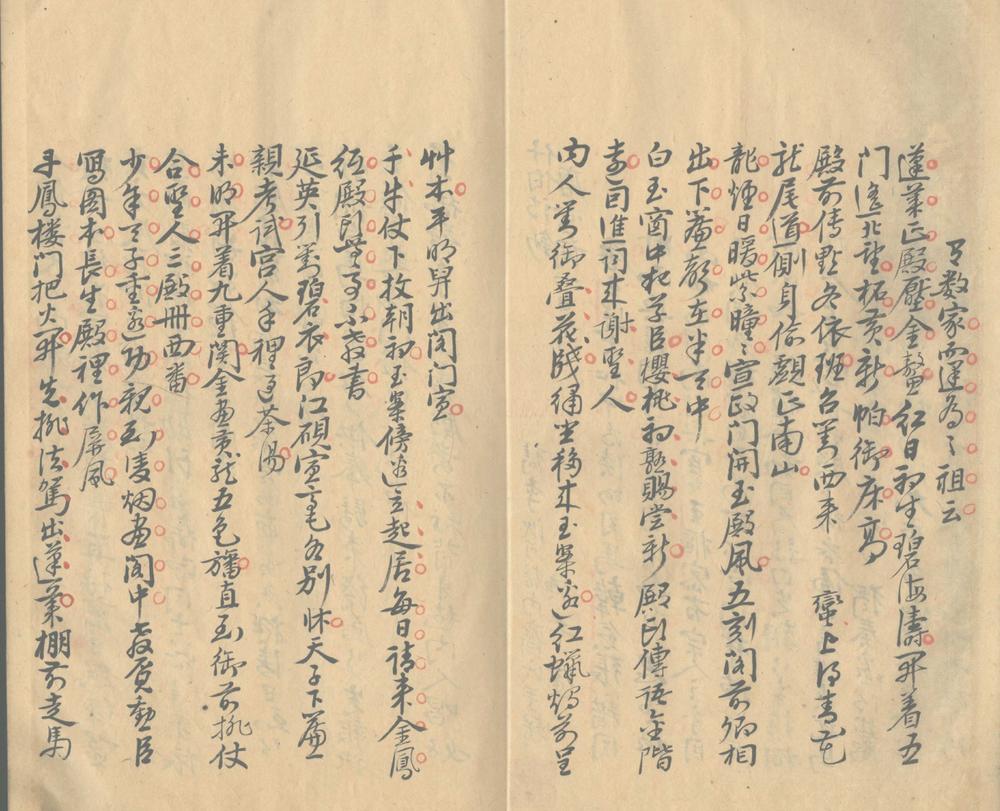 數家而建為之祖云
蓬萊正殿壓金鰲紅日初生碧海濤開着五
門遙北望柘黃新帕御床高
殿前傳點各依班召對西來 蠻上得青花
龍尾道側身偷覷正南山
龍煙日暖紫曈々宣政門開玉殿風五刻閣前卿相
出下簾聲在半天中
白玉窗中起草臣櫻桃初熟賜嘗新殿頭傳語金階
遠旬進詞來謝聖人
內人對御疊花牋繡坐移來玉案邊紅蠟燭前呈
艸本平明舁出閣門宣
千牛仗下放朝初玉案傍邊立起居每日請來金鳳
紙殿頭無事不教書
延英引對碧衣郎江硯宣毫各別牀天子下簾
親考試宮人手裡過茶湯
未明開着九重關金畫黃龍五色旛直到御前排仗
合聖人三殿冊西番
少年天子重邊功親到凌烟畫閣中教覓勳臣
寫圖本長生殿裡作屏風
丹鳳樓門把火開先排法駕出蓬萊棚前走馬